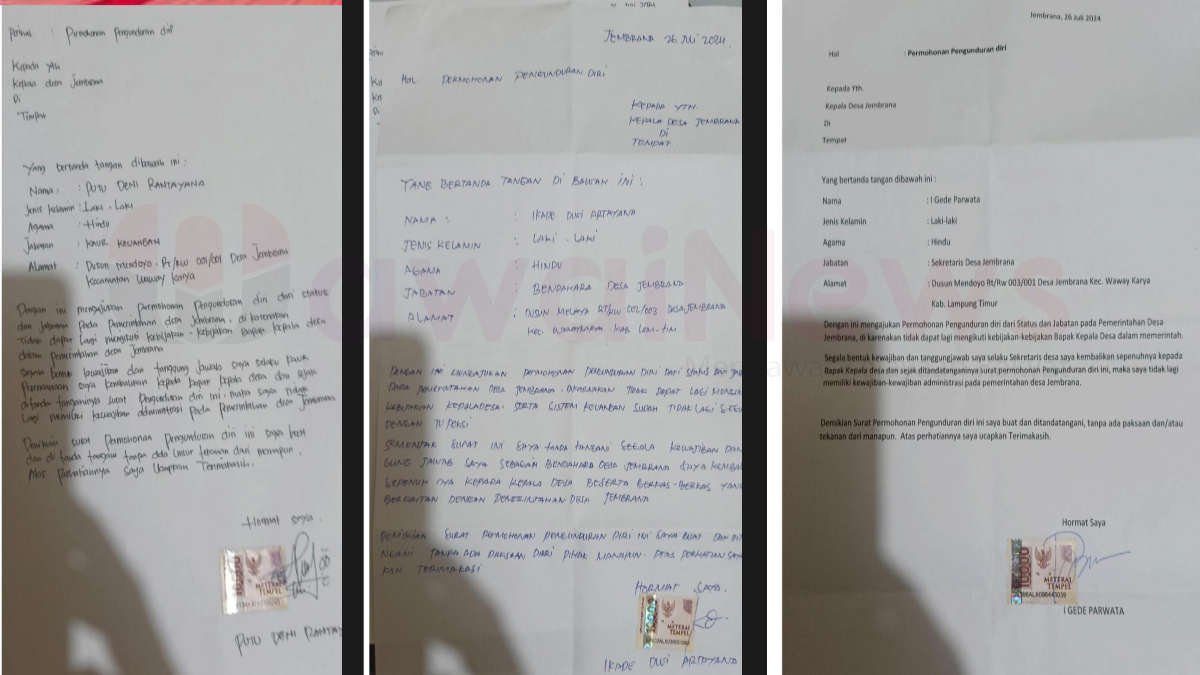 Perihal : Permohonan Pengunduran diri
Kepada Yth
Kepala desa Jembrana
Di
Tempat
Yang bertanda tangan dibawah ini :
Nama : PUTU DENI RANTAYANA
Jenis kelamin : Laki - Laki
Agama : Hindu
Jabatan : KAUR KEUANGAN
Alamat : Dusun Mendoyo Rt/RW 001/001 Desa Jembrana
Kecamatan Waway Karya
Dengan ini mengajukan Permohonan Pengunduran diri dari status
dan Jabatan Pada Pemerintahan desa Jembrana, di karenakan
Tidak dapat Lagi mengikuti kebijakan-kebijakan Bapak kepala desa
dalam pemerintahan desa Jembrana
dan tanggung Jawab saya selaku kaur
saya kembalikan kepada bapak kepala desa dan sejak
surat Pengunduran diri ini, maka saya tidak
Lagi memiliki kewajiban administrasi Pada Pemerintahan desa Jembrana
Demikian surat Permohonan Pengunduran diri ini saya buat
dan di tanda tangani tanpa ada unsur tekanan dari manapun.
Atas perhatiannya Saya Ucapkan Terimakasih.
Hormat saya.
10000
METERAI
TEMPEL
PUTU DENI RANTAY
JEMBRANA 26 JULI 2024.
HAL PERMOHONAN PENGUNDURAN DIRI
KEPADA YTH.
KEPALA DESA JEMBRANA
DI
TEMPAT
YANG BERTANDA TANGAN DI BAWAH INI :
NAMA : : IKADE DWI ARTAYANA
JENIS KELAMIN : LAKI - LAKI
AGAMA : HINDU
JABATAN : BENDAHARA DESA JEMBRANA
ALAMAT : DUSUN MELAYA RT/RW 002/003 DESA JEMBRANA
KEC. WAWAYKARYA KAB. LAM-TIM
DENGAN INI PERMOHONAN PENGUNDURAN DIRI DARI STATUS DAN
PADA PEMERINTAHAN DESA JEMBRANA. DIKARNAKAN TIDAK DAPAT LAGI
KEBIJAKAN KEPALA DESA. SERTA SISTEM KEUANGAN SUDAH TIDAK LAGI
DENGAN TUPOKSI
SEMENJAK SURAT INI SAYA TANDA TANGANI SEGALA KEWAJIBAN DAN
GUNG JAWAB SAYA SEBAGAI BENDAHARA DESA JEMBRANA SAYA KEMBAL
SEPENUH NYA KEPADA KEPALA DESA BESERTA BERKAS-BERKAS YANG
BERKAITAN DENGAN PEMERINTAHAN DESA JEMBRANA
DEMIKIAN SURAT PERMOHONAN PENGUNDURAN DIRI INI SAYA BUAT DAN
NGANI TANPA ADA PAKSAAN DARI PIHAK MANAPUN. ATAS PERHATIAN SAYA
KAN TERIMAKASI
HORMAT SAYA.
METERAI
TEMPEL
IKADE DWI ARTAYANA
Jembrana, 26 Juli 2024
Hal : Permohonan Pengunduran diri
Kepada Yth.
Kepala Desa Jembrana
Di
Tempat
Yang bertanda tangan dibawah ini :
Nama : I Gede Parwata
Jenis Kelamin : Laki-laki
Agama : Hindu
Jabatan : Sekretaris Desa Jembrana
Alamat : Dusun Mendoyo Rt/Rw 003/001 Desa Jembrana Kec. Waway Karya
Kab. Lampung Timur
Dengan ini mengajukan Permohonan Pengunduran diri dari Status dan Jabatan pada Pemerintahan Desa
Jembrana, di karenakan tidak dapat lagi mengikuti kebijakan-kebijakan Bapak Kepala Desa dalam memerintah.
Segala bentuk kewajiban dan tanggungjawab saya selaku Sekretaris desa saya kembalikan sepenuhnya kepada
Bapak Kepala desa dan sejak ditandatanganinya surat permohonan Pengunduran diri ini, maka saya tidak lagi
memiliki kewajiban-kewajiban administrasi pada pemerintah desa Jembrana.
Demikian Surat Permohonan Pengunduran diri ini saya buat dan ditandatangani, tanpa ada paksaan dan/atau
tekanan dari manapun. Atas perhatiannya saya ucapkan Terimakasih.
Hormat Saya
10000
METERAI
TEMPEL
I GEDE PARWATA
WawaiNews